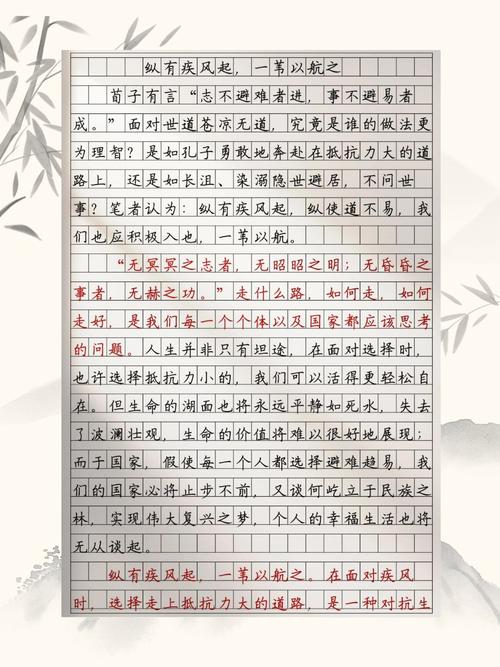 纵有疾风起，一苇以航之
荀子有言“志不避难者进，事不避易者
成。”面对世道苍凉无道，究竟是谁的做法更
为理智？是如孔子勇敢地奔赴在抵抗力大的道
路上，还是如长沮、桀溺隐世避居，不问世
事？笔者认为：纵有疾风起，纵使道不易，我
们也应积极入也，一苇以航。
“无冥冥之志者，无昭昭之明；无昏昏之
事者，无赫之功。”走什么路，如何走，如何
走好，是我们每一个个体以及国家都应该思考
的问题。人生并非只有坦途，在面对选择时，
也许选择抵抗力小的，我们可以活得更轻松自
在。但生命的湖面也将永远平静如死水，失去
了波澜壮观，生命的价值将难以很好地展现；
而于国家，假使每一个人都选择避难趋易，我
们的国家必将止步不前，又谈何屹立于民族之
林，实现伟大复兴之梦，个人的幸福生活也将
无从谈起。
纵有疾风起，一苇以航之。在面对疾风
时，选择走上抵抗力大的道路，是一种对抗生